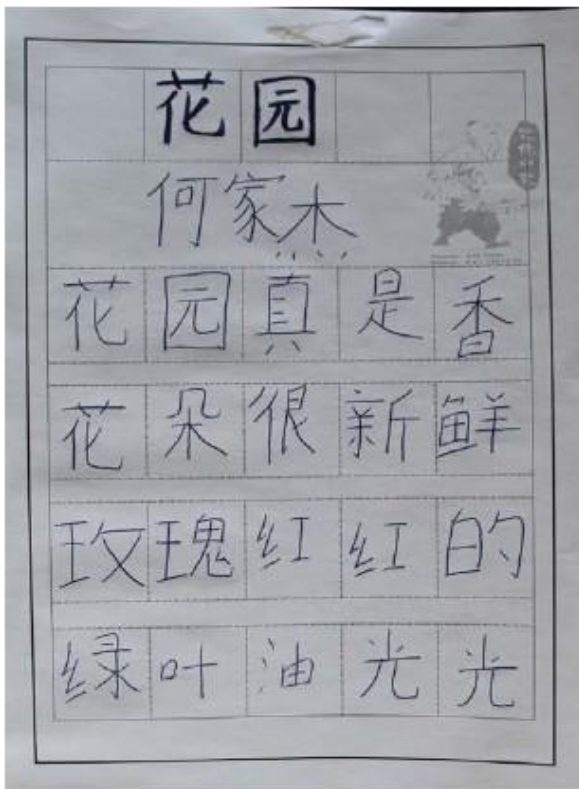 花园
何家杰
花园真是香
花朵很新鲜
玫瑰红红的
绿叶油光光